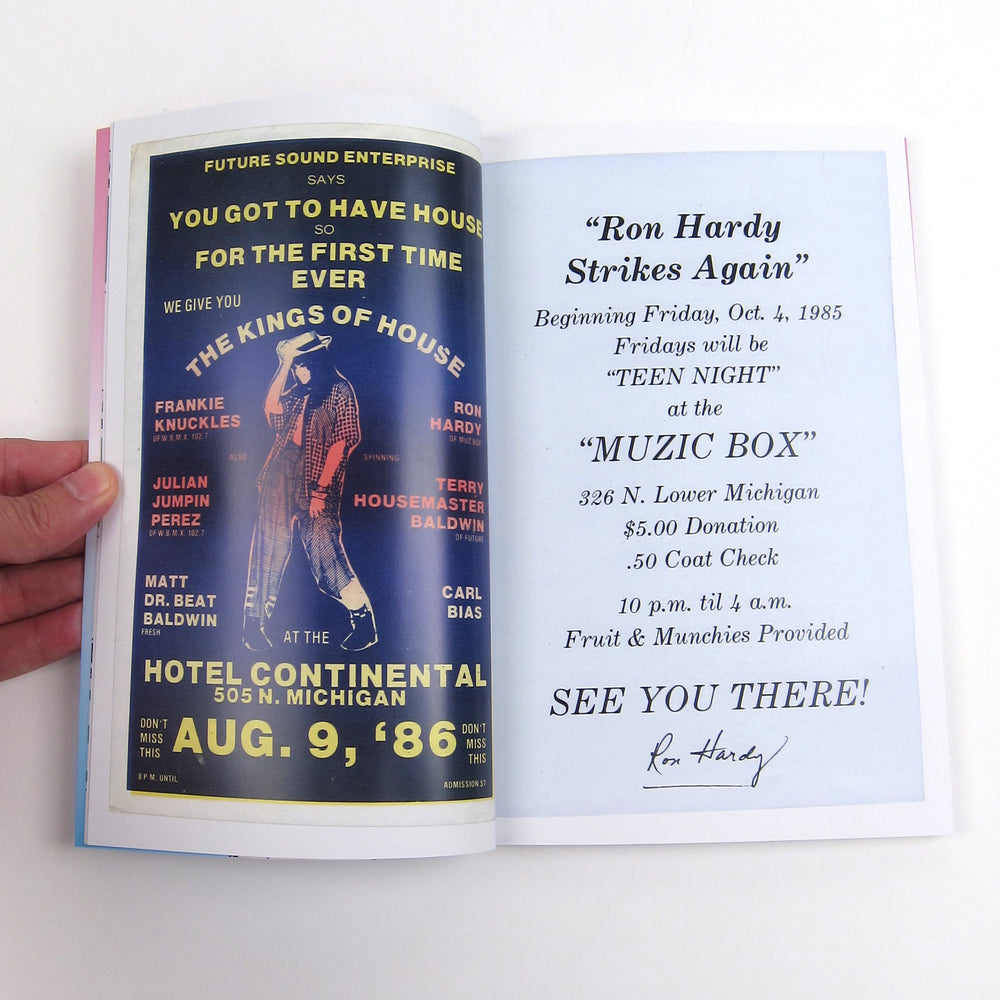 FUTURE SOUND ENTERPRISE
SAYS
YOU GOT TO HAVE HOUSE
SO
FOR THE FIRST TIME
EVER
WE GIVE YOU
THE KINGS OF HOUSE
FRANKIE
KNUCKLES
OF W.B.M.X. 102.7
RON
HARDY
OF MUZ BOX
ALSO SPINNING
JULIAN
JUMPIN
PEREZ
OF W.B.M.X. 102.7
TERRY
HOUSEMASTER
BALDWIN
OF FUTURE
MATT
DR. BEAT
BALDWIN
FRESH
CARL
BIAS
AT THE
HOTEL CONTINENTAL
505 N. MICHIGAN
DON'T
MISS
THIS
AUG. 9, '86
DON'T
MISS
THIS
8 P.M. UNTIL
ADMISSION $7
“Ron Hardy
Strikes Again”
Beginning Friday, Oct. 4, 1985
Fridays will be
“TEEN NIGHT”
at the
“MUZIC BOX”
326 N. Lower Michigan
$5.00 Donation
.50 Coat Check
10 p.m. til 4 a.m.
Fruit & Munchies Provided
SEE YOU THERE!
Ron Hardy